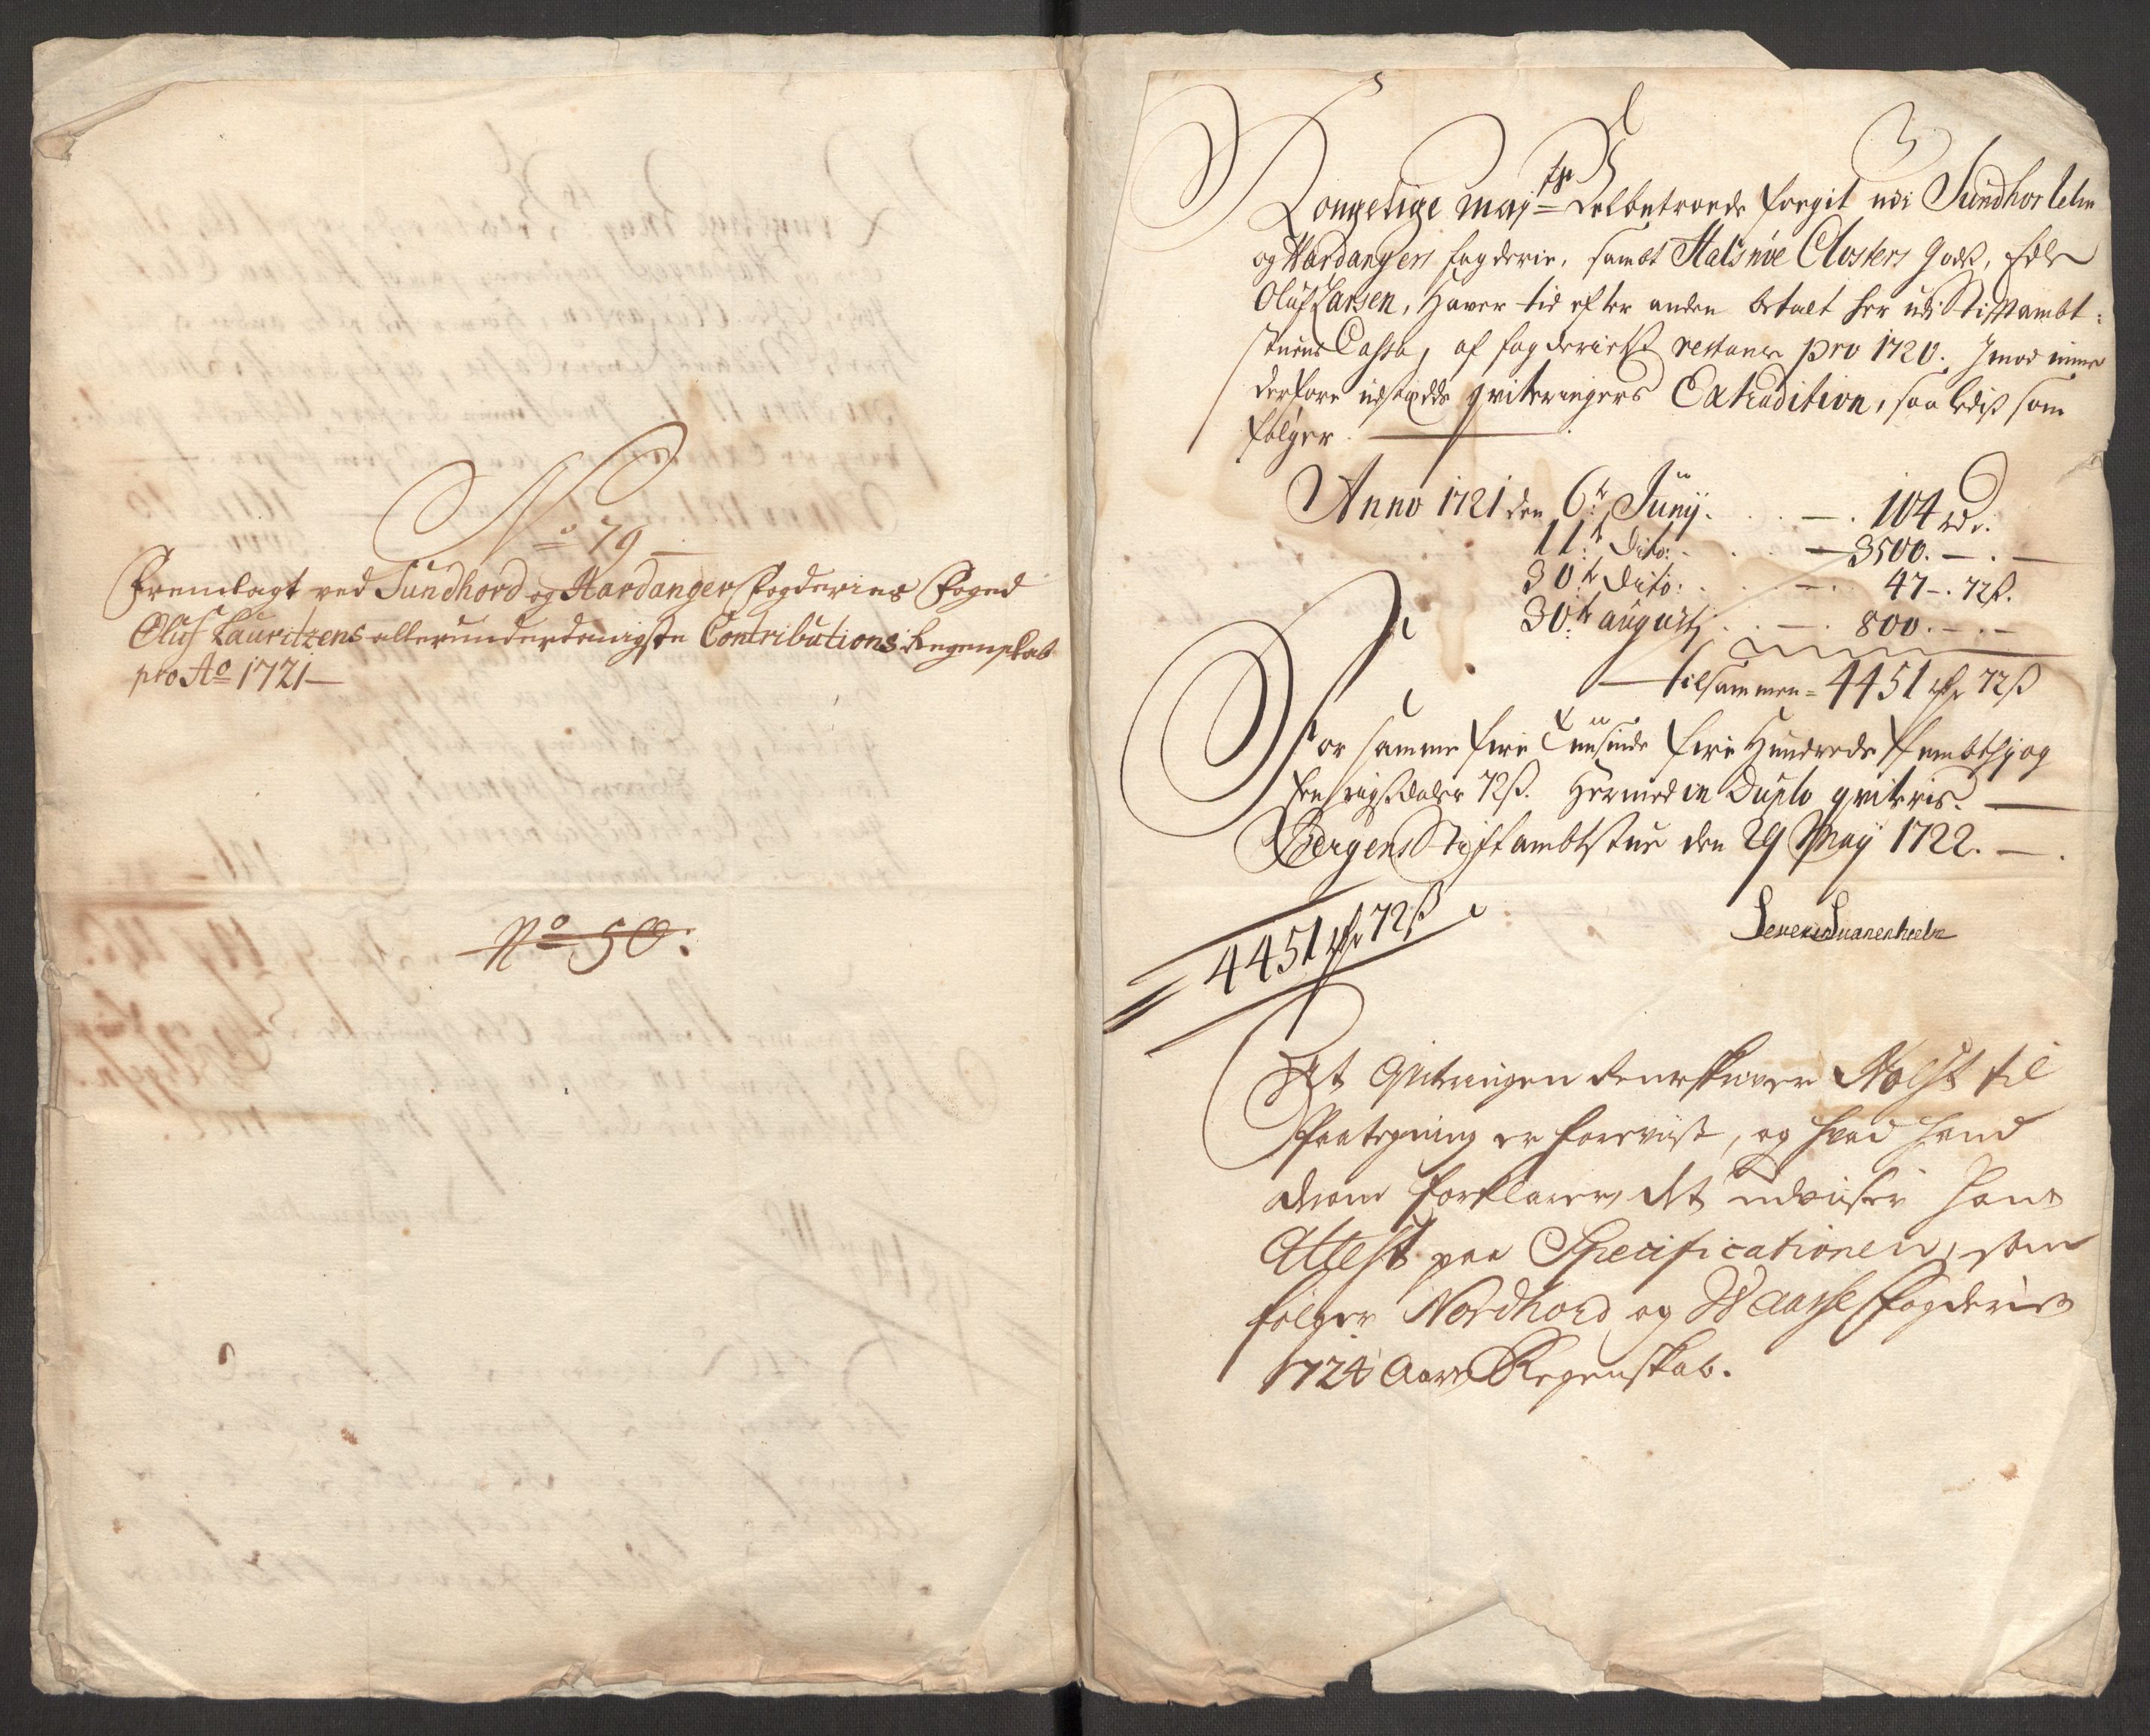 No 79
Fremlagt ved Sundhord og Hardanger Fogderies Foged
Oluf Lauritzens allerunderdanigste Contributions Regenskab
pro Ao 1721
No 50:
Kongelige Mayts Velbetroede fogit udi Sundhorlehn
og Hardangers fogderie, sambt Halsnöe Closters Gods, Edle
Oluf Larsen, Haver tid efter anden betalt her udi Stiftambt:
stuens Cassa, af fogderiets restance pro 1720. Imod mine
derfore udstædde qviteringers Extradition, saaledis som
følger.
Anno 1721 den 6te Junij. 104 rdr.
11te Dito: 3500. - . -
30te Dito: 47 - . 72 ß.
30te augustj 800. - . -
tilsammen = 4451 rdr 72 ß
For samme fire Tuusinde fire Hundrede Fembtij og
Een rigsdaler 72 ß. Hermed in Duplo qviteris.
Bergens Stiftambtstue den 29 Maij 1722.
Severin Svanenhielm
4451 rdr 72 ß
At Qviteringen Renteskriver Holst til
Paategning er foreviist, og hvad hand
derom forklarer, det udviiser hans
Attest paa Specificationen, som
følger Nordhord og Waasse Fogderies
1724 Aars Regenskab.